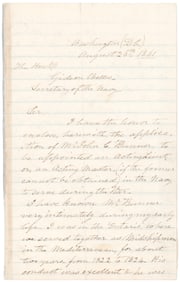 Washington (D.C.)
August 26th 1861
The Hon
Gideon Welles
Secretary of the Navy
Sir
I have the honor to
enclose herewith the applica-
tion of Mr John C.
to be appointed an
or an Acting Master, if the former
cannot be obtained, in the Navy
to serve during the War.
I have known Mr
very intimately during my early
life. I was in the Ontario, where
we served together as Midshipmen
in the Mediterranean for about
two years from 1822 to 1824. His
conduct was excellent & he was